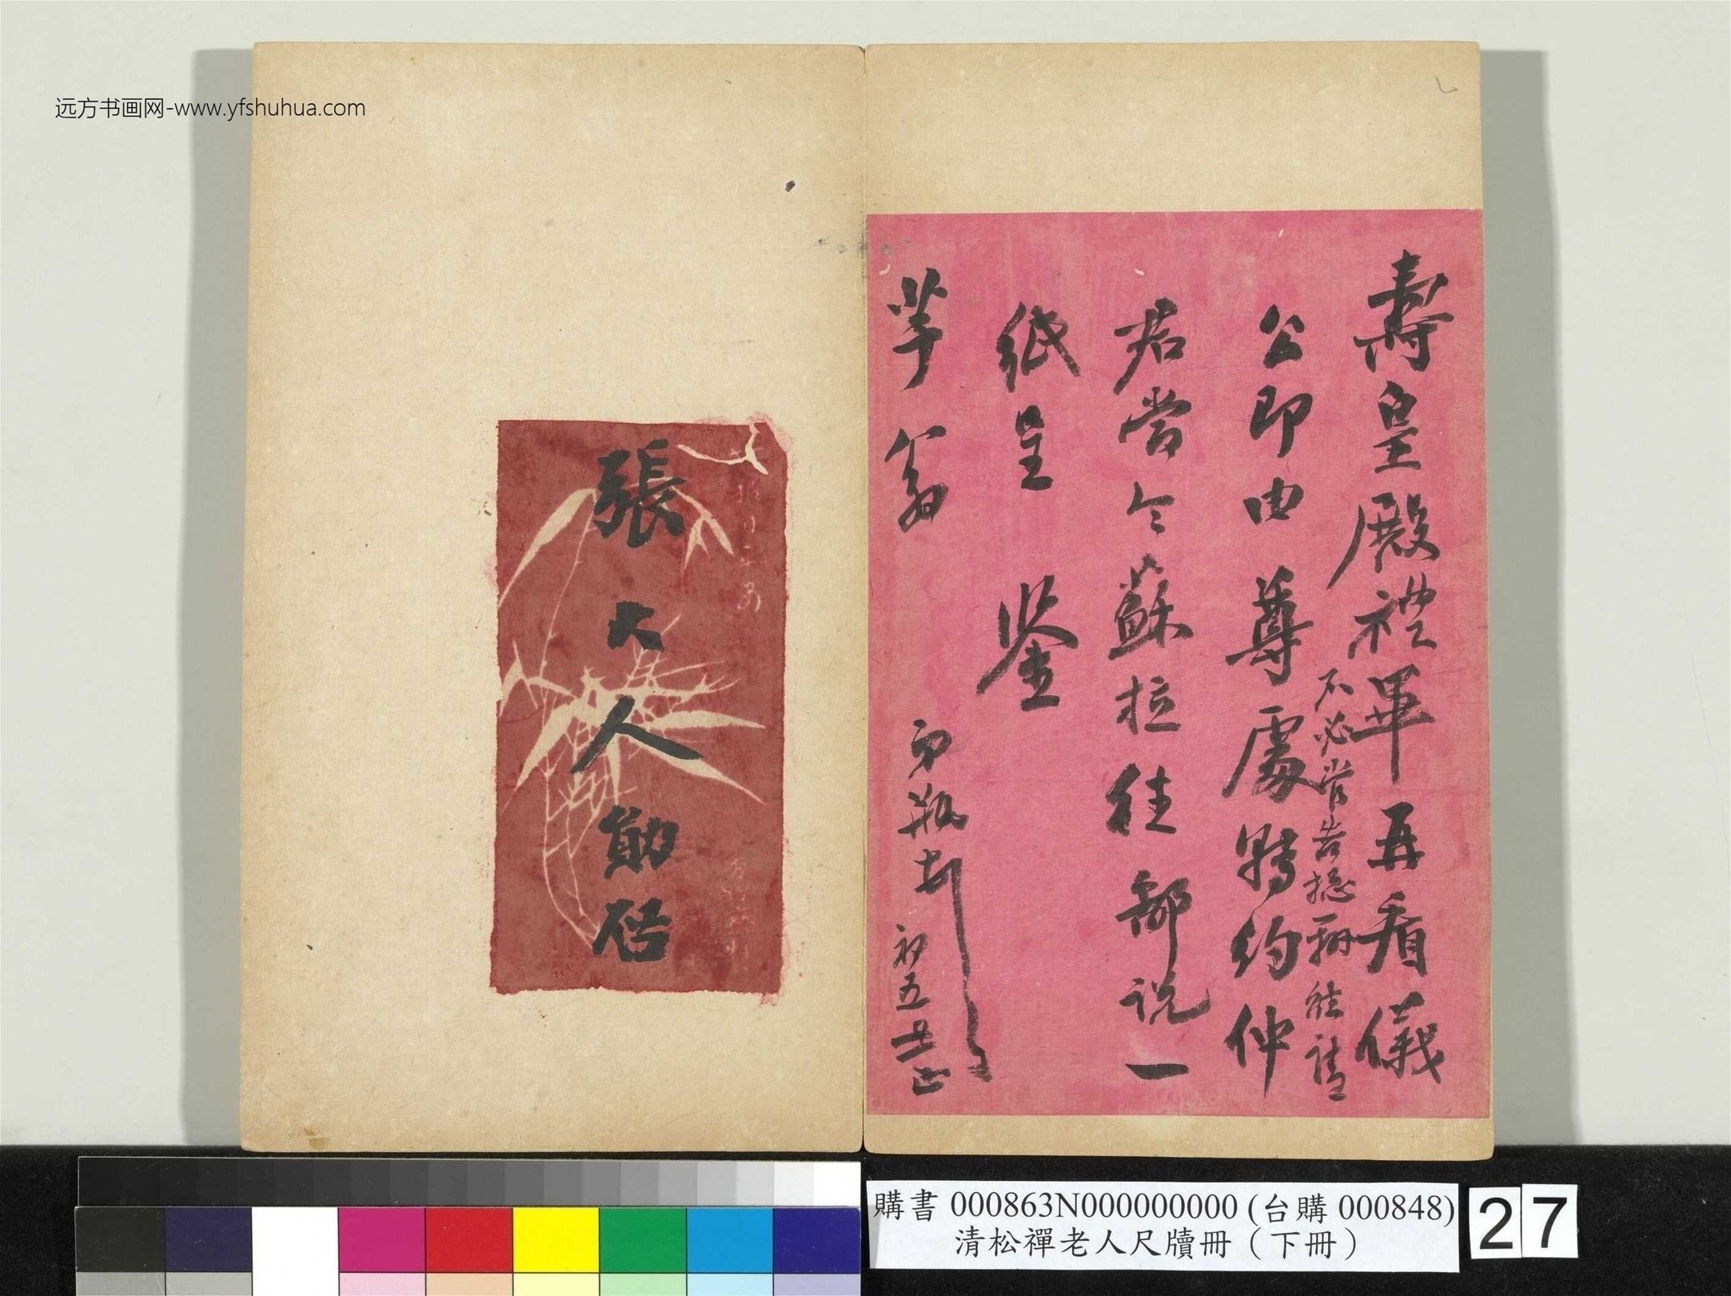 远方书画网-www.yfshuhua.com
壽皇殿禮畢再看儀
不必嘗告摠辦往請
公即由尊處轉約仲
君當令蘇拉往部說一
紙呈鉴
翁
弟瓶生
初五
張大人勛啓
購書 000863N000000000 (台購 000848)
清松禪老人尺牘冊（下冊）
27